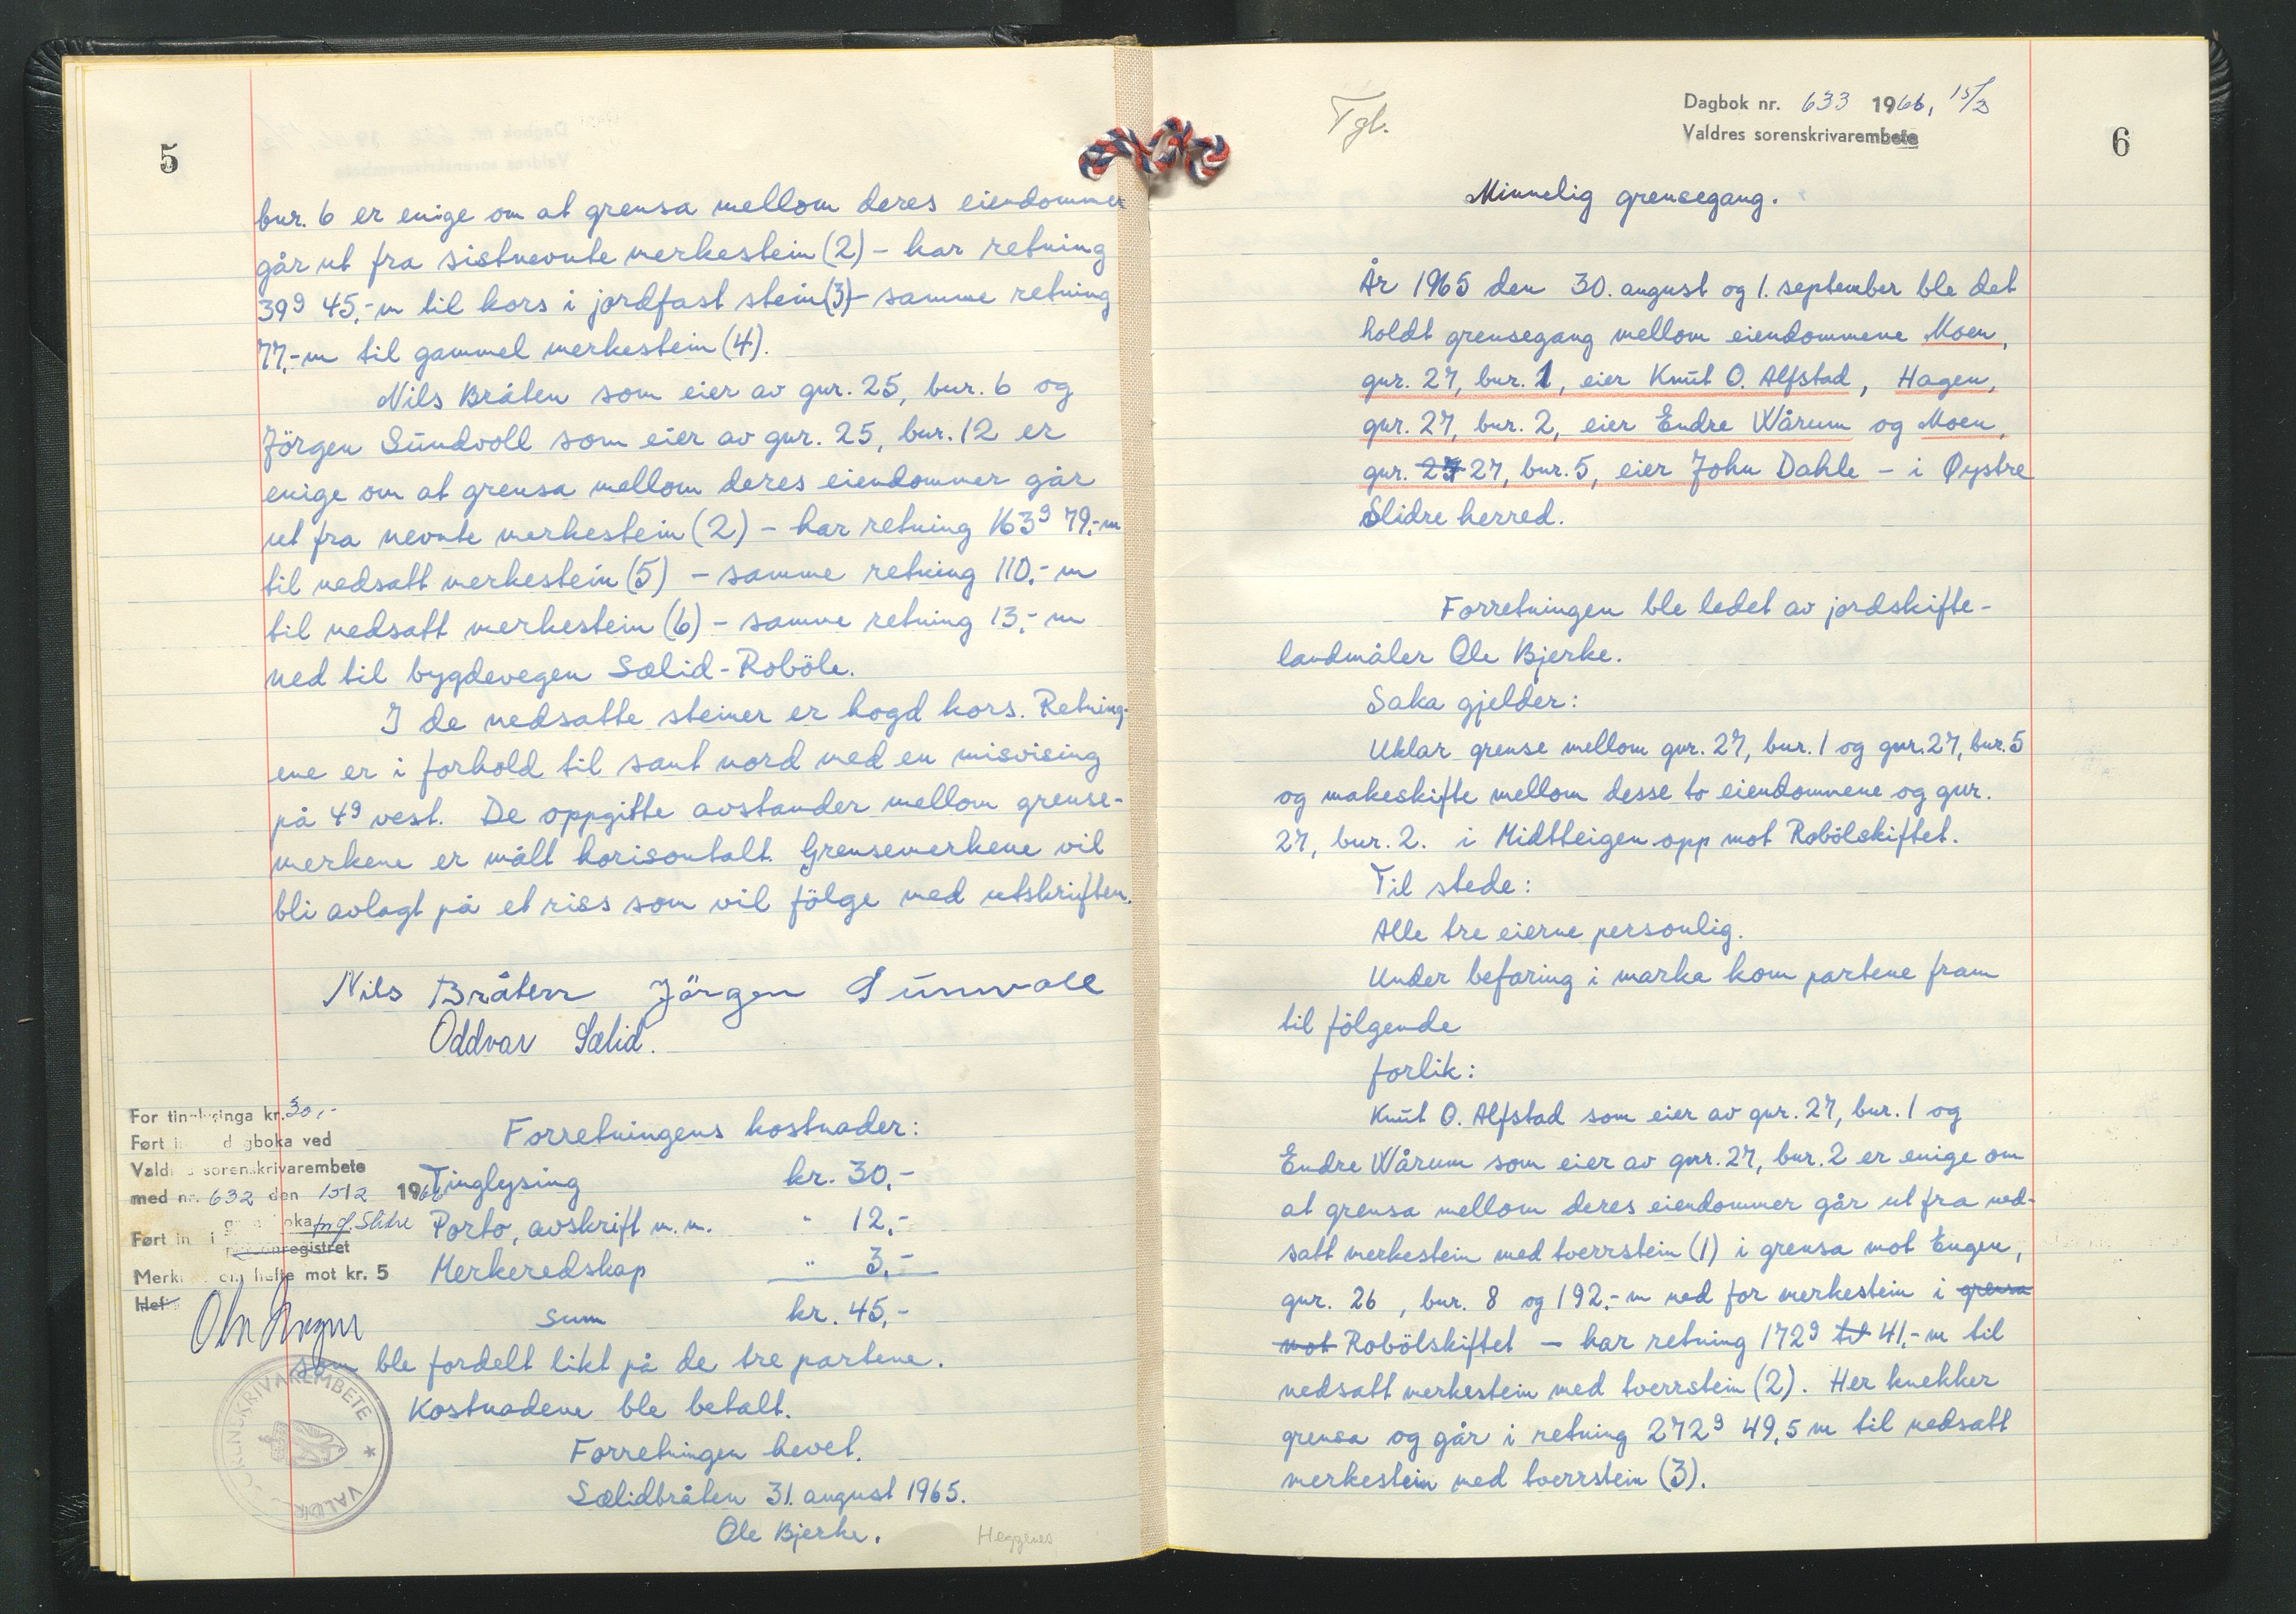 5
bnr. 6 er enige om at grensa mellom deres eiendommer
går ut fra sistnevnte merkestein (2) – har retning
39g 45,-m til kors i jordfast stein (3) – samme retning
77,-m til gammel merkestein (4).
Nils Bråten som eier av gnr. 25, bnr. 6 og
Jörgen Sundvoll som eier av gnr. 25, bnr. 12 er
enige om at grensa mellom deres eiendommer går
ut fra nevnte merkestein (2) – har retning 163g 79,-m
til nedsatt merkestein (5) – samme retning 110,- m
til nedsatt merkestein (6) – samme retning 13,- m
ned til bygdevegen Sælid-Roböle.
I de nedsatte steiner er hogd kors. Retning-
ene er i forhold til sant nord med en misvising
på 4g vest. De oppgitte avstander mellom grense-
merkene er målt horisontalt. Grensemerkene vil
bli avlagt på et riss som vil fölge med utskriften.
Nils Bråten Jörgen Sunvoll
Oddvar Sælid.
For tinglysinga kr. 30,-
Ført i dagboka ved
Valdres sorenskrivarembete
med nr. 632 den 15/2 1966
Ført inn i
personregistret
Merk hefte mot kr. 5
Forretningens kostnader:
Tinglysing kr. 30,-
Porto, avskrift m.m. " 12,-
Merkeredskap " 3,-
Sum kr. 45,-
som ble fordelt likt på de tre partene.
Kostnadene ble betalt.
Forretningen hevet.
Sælidbråten 31. august 1965.
Ole Bjerke.
Heggenes
SORENSKRIVAREMBETE * VALDRES
Tgl.
Dagbok nr. 633 1966, 15/2
Valdres sorenskrivarembete
6
Minnelig grensegang.
År 1965 den 30. august og 1. september ble det
holdt grensegang mellom eiendommene Moen,
gnr. 27, bnr. 1, eier Knut O. Alfstad, Hagen,
gnr. 27, bnr. 2, eier Endre Wårum og Moen,
gnr. 27 27, bnr. 5, eier John Dahle – i Øystre
Slidre herred.
Forretningen ble ledet av jordskifte-
landmåler Ole Bjerke.
Saka gjelder:
Uklar grense mellom gnr. 27, bnr. 1 og gnr. 27, bnr. 5
og makeskifte mellom desse to eiendommene og gnr.
27, bnr. 2. i Midtteigen opp mot Robölskiftet.
Til stede:
Alle tre eierne personlig.
Under befaring i marka kom partene fram
til fölgende
forlik:
Knut O. Alfstad som eier av gnr. 27, bnr. 1 og
Endre Wårum som eier av gnr. 27, bnr. 2 er enige om
at grensa mellom deres eiendommer går ut fra ned-
satt merkestein med tverrstein (1) i grensa mot Engen,
gnr. 26, bnr. 8 og 192,- m ned for merkestein i grensa
mot Robölskiftet – har retning 172g til 41,- m til
nedsatt merkestein med tverrstein (2). Her knekker
grensa og går i retning 272g 49,5 m til nedsatt
merkestein med tverrstein (3).